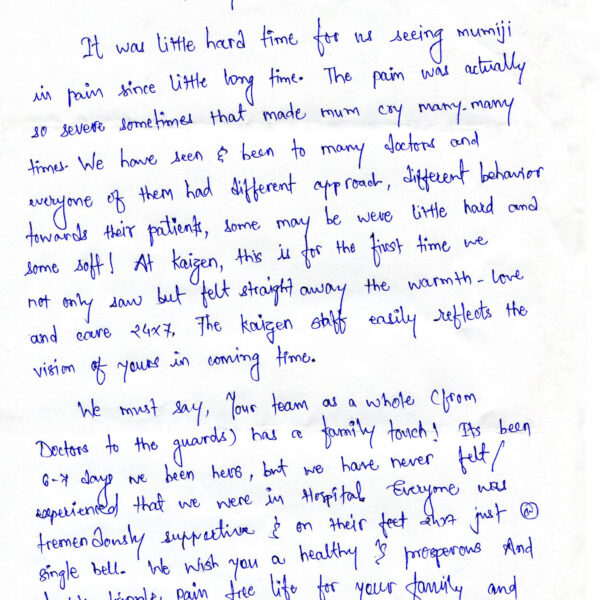 It was little hard time for us seeing mumiji
in pain since little long time. The pain was actually
so severe sometimes that made mum cry many-many
times. We have seen & been to many doctors and
everyone of them had different approach, different behavior
towards their patients, some may be were little hard and
some soft! At Kaizen, this is for the first time we
not only saw but felt straight away the warmth-love
and care 24x7. The Kaizen staff easily reflects the
vision of yours in coming time.
We must say, Your team as a whole (from
Doctors to the guards) has a family touch! Its been
6-7 days we been here, but we have never felt/
experienced that we were in Hospital. Everyone was
tremendously supportive & on their feet 24x7 just
single bell. We wish you a healthy & prosperous And
pain free life for your family and